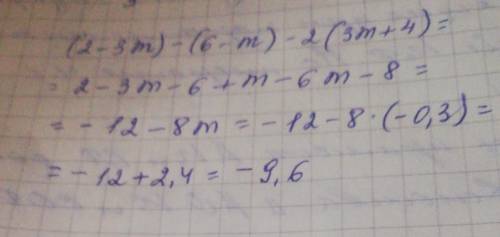 (2-3m)-(6-m)-2(3m+4)=
=2-3m-6+m-6m-8=
=-12-8m=-12-8·(-0,3)=
=-12+2,4=-9,6